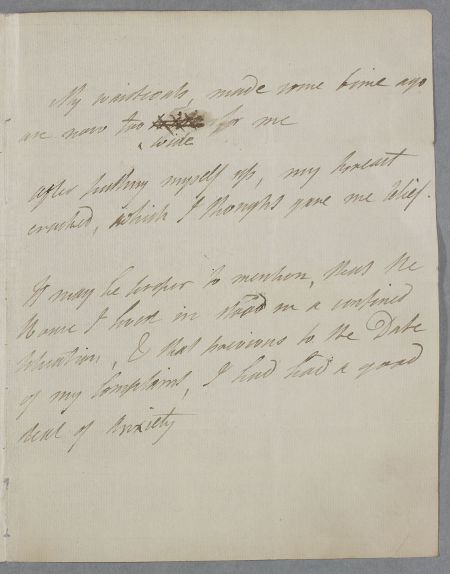 My waistcoats, made some time ago
are now too wide for me
after pulling myself up, my breast
cracked, which I thought gave me relief.
It may be proper to mention, that the
House I lived in stood in a confined
Situation, & that previous to the Date
of my Complaint, I had had a good
deal of Anxiety